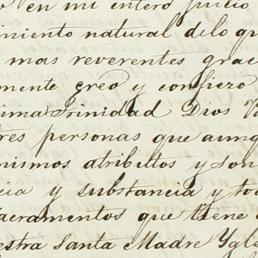 en mi entero juicio
miento natural delo qu
mas reverentes graci
mente creo y confiero
ima Trinidad Dios
res personas que aunq
mismos atributos y son
cia y substancia y to
sacramentos que tiene
estra Santa Madre Ygle